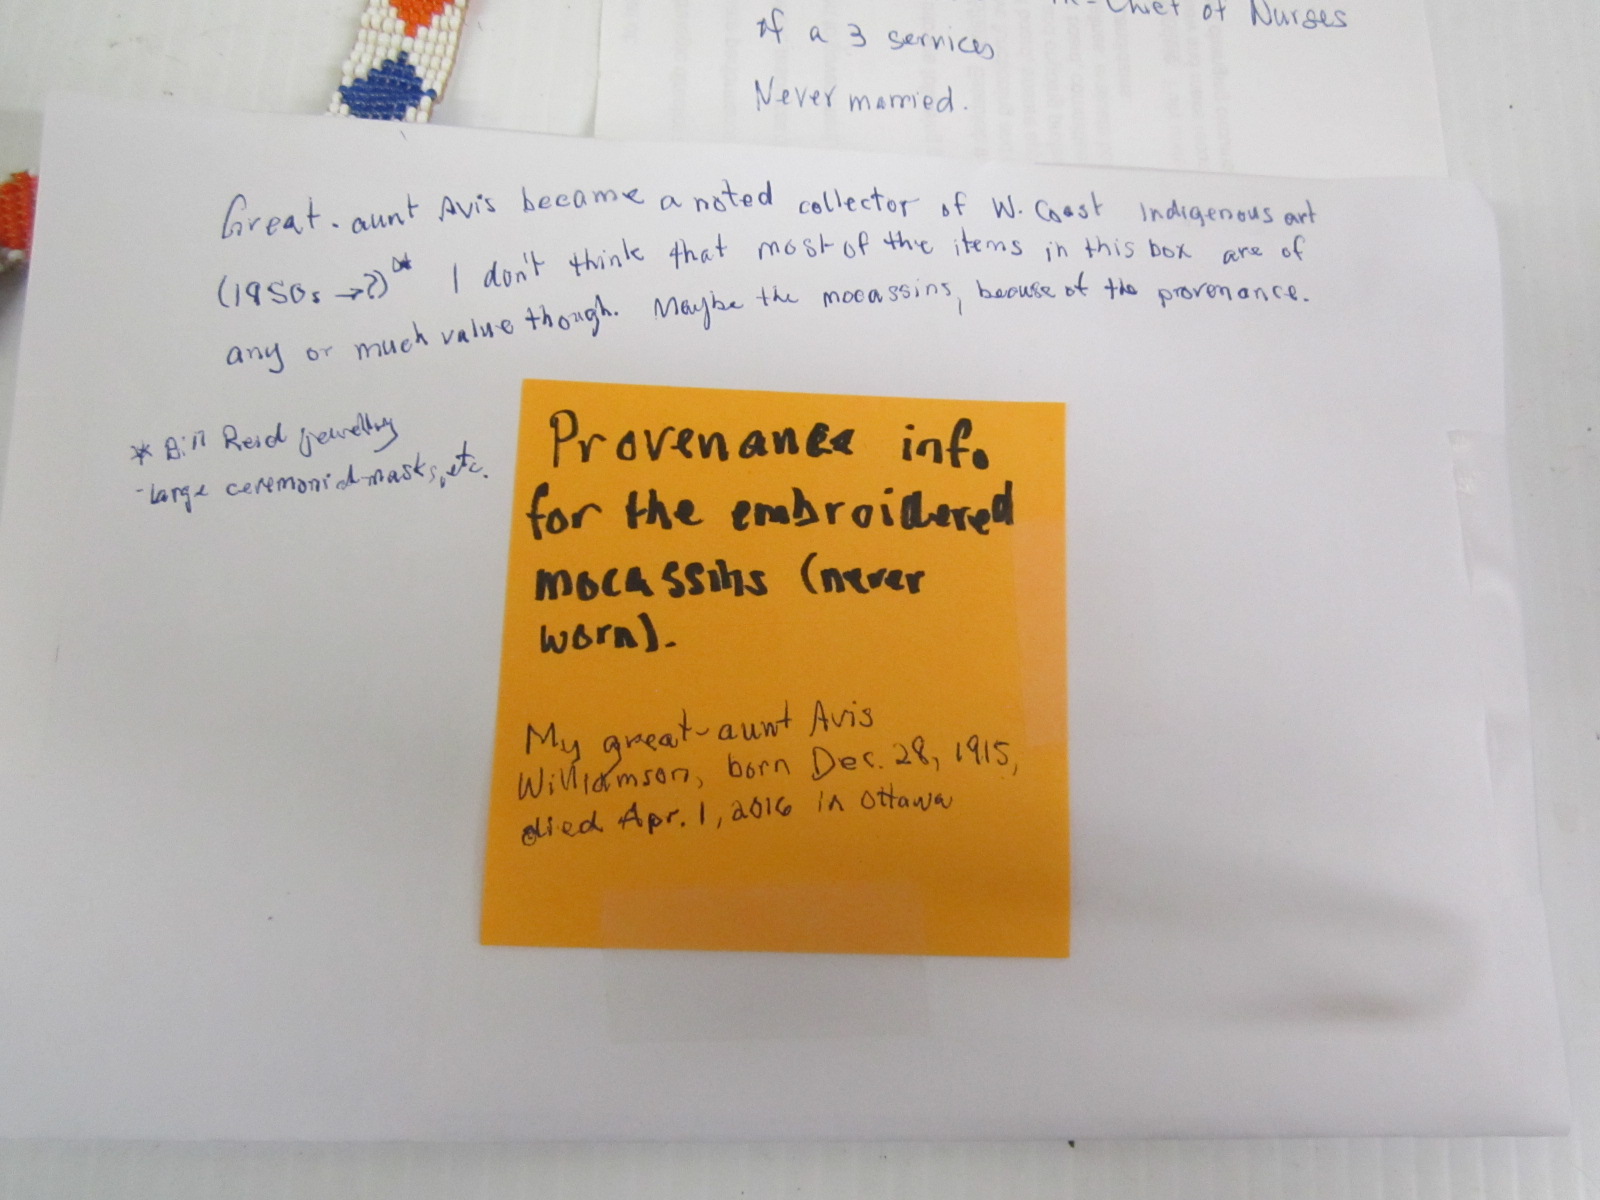 -Chief of Nurses
of a 3 services
Never married.
Great-aunt Avis became a noted collector of W. Coast Indigenous art
(1950s →?)* I don't think that most of the items in this box are of
any or much value though. Maybe the mocassins, because of the provenance.
* Bill Reid jewellry
-large ceremonial masks, etc.
Provenance info
for the embroidered
mocassins (never
worn).
My great-aunt Avis
Williamson, born Dec. 28, 1915,
died Apr. 1, 2016 in Ottawa